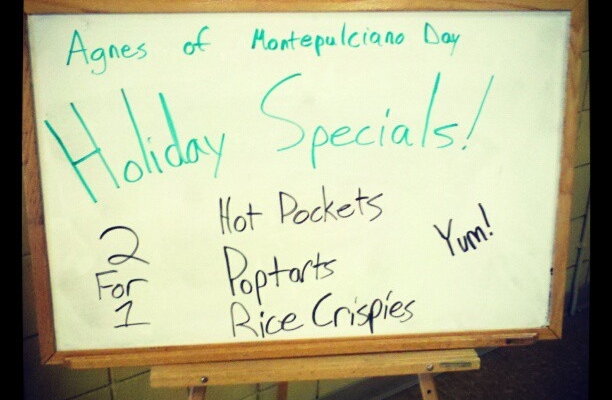 Agnes of Montepulciano Day
Holiday Specials!
2
For
1
Hot Pockets
Poptarts
Rice Crispies
Yum!